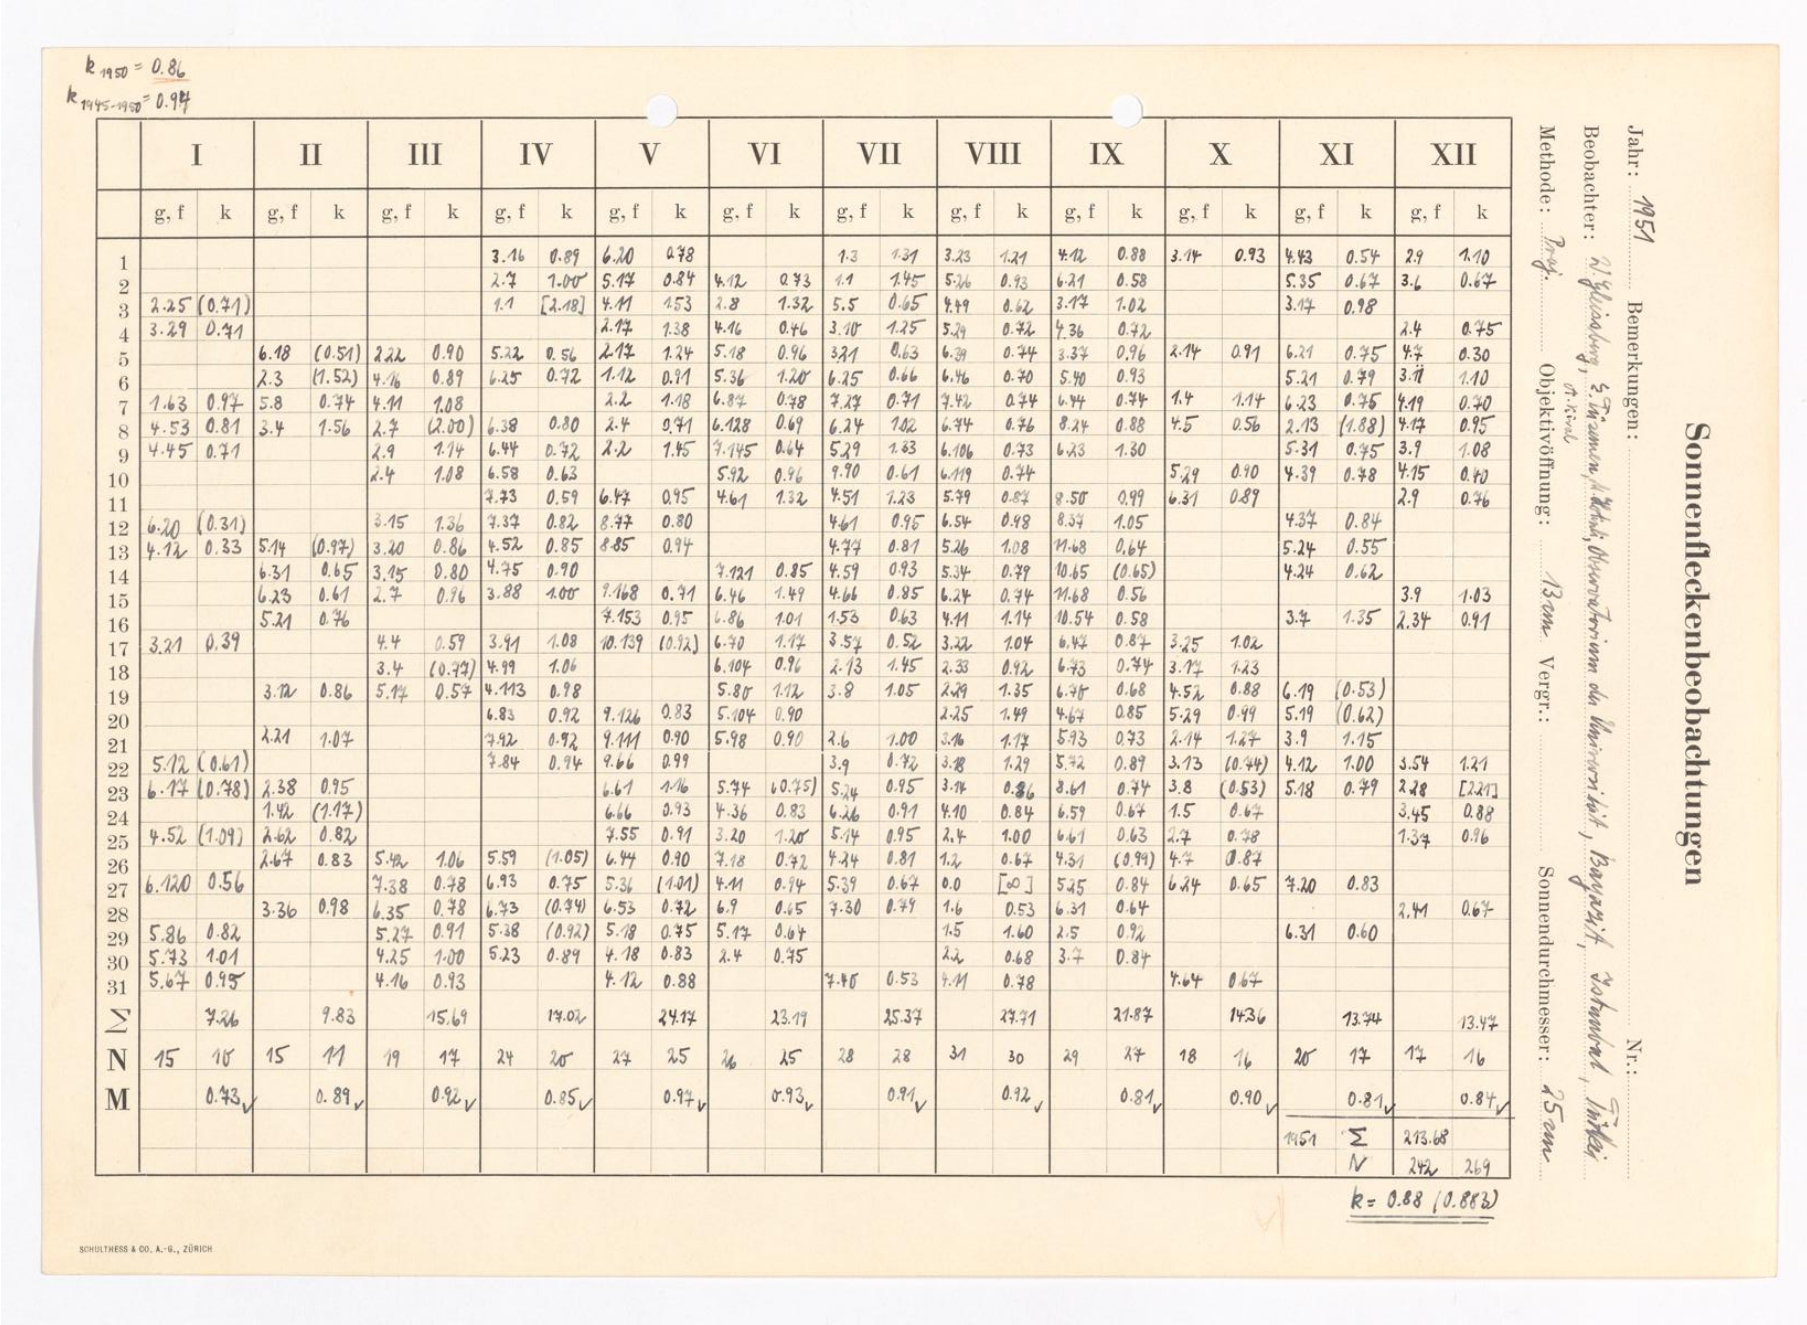 k 1950 = 0.86
k 1945-1950 = 0.94
Sonnenfleckenbeobachtungen
Jahr: 1951 Bemerkungen: Nr.:
Beobachter: W. Gleissberg, Observatorium der Universität, Bayazit, Istanbul, Türkei
Methode: Proj. Objektivöffnung: 13 cm Vergr.: Sonnendurchmesser: 25 cm
I II III IV V VI VII VIII IX X XI XII
g, f k g, f k g, f k g, f k g, f k g, f k g, f k g, f k g, f k g, f k g, f k g, f k
1 3.16 0.89 6.20 0.78 1.3 1.31 3.23 1.21 4.12 0.88 3.14 0.93 4.43 0.54 2.9 1.10
2 2.7 1.00 5.17 0.84 4.12 0.73 1.1 1.45 5.26 0.93 6.21 0.58 5.35 0.67 3.6 0.67
3 2.25 (0.71) 1.1 [2.18] 4.11 1.53 2.8 1.32 5.5 0.65 4.49 0.62 3.17 1.02 3.17 0.98
4 3.29 0.71 2.17 1.38 4.16 0.46 3.10 1.25 5.29 0.72 4.36 0.72 2.4 0.75
5 6.18 (0.51) 2.22 0.90 5.22 0.56 2.17 1.24 5.18 0.96 3.21 0.63 6.39 0.74 3.37 0.96 2.14 0.91 6.21 0.75 4.7 0.30
6 2.3 (1.52) 4.16 0.89 6.25 0.72 1.12 0.91 5.36 1.20 6.25 0.66 6.46 0.70 5.40 0.93 5.21 0.79 3.11 1.10
7 1.63 0.97 5.8 0.74 4.11 1.08 2.2 1.18 6.87 0.78 7.27 0.71 7.42 0.74 6.44 0.74 1.4 1.14 6.23 0.75 4.19 0.70
8 4.53 0.81 3.4 1.56 2.7 (2.00) 6.38 0.80 2.4 0.71 6.128 0.69 6.24 1.02 6.74 0.76 8.24 0.88 4.5 0.56 2.13 (1.88) 4.17 0.95
9 4.45 0.71 2.9 1.14 6.44 0.72 2.2 1.45 7.145 0.64 5.29 1.33 6.106 0.73 6.23 1.30 5.31 0.75 3.9 1.08
10 2.4 1.08 6.58 0.63 5.92 0.96 9.90 0.61 6.119 0.74 5.29 0.90 4.39 0.78 4.15 0.40
11 7.73 0.59 6.47 0.95 4.61 1.32 4.51 1.23 5.79 0.87 8.50 0.99 6.31 0.89 2.9 0.76
12 6.20 (0.31) 3.15 1.36 7.37 0.82 8.77 0.80 4.61 0.95 6.54 0.98 8.37 1.05 4.37 0.84
13 4.12 0.33 5.14 (0.97) 3.20 0.86 4.52 0.85 8.85 0.94 4.77 0.81 5.26 1.08 11.68 0.64 5.24 0.55
14 6.31 0.65 3.15 0.80 4.75 0.90 7.121 0.85 4.59 0.93 5.34 0.79 10.65 (0.65) 4.24 0.62
15 6.23 0.61 2.7 0.96 3.88 1.00 9.168 0.71 6.46 1.49 4.66 0.85 6.24 0.74 11.68 0.56 3.9 1.03
16 5.21 0.76 7.153 0.95 6.86 1.01 1.53 0.63 4.11 1.14 10.54 0.58 3.7 1.35 2.34 0.91
17 3.21 0.39 4.4 0.59 3.91 1.08 10.139 (0.92) 6.70 1.17 3.57 0.52 3.22 1.04 6.47 0.87 3.25 1.02
18 3.4 (0.77) 4.99 1.06 6.104 0.96 2.13 1.45 2.33 0.92 6.73 0.74 3.17 1.23
19 3.12 0.86 5.17 0.57 4.113 0.98 5.80 1.12 3.8 1.05 2.29 1.35 6.78 0.68 4.52 0.88 6.19 (0.53)
20 6.83 0.92 9.126 0.83 5.104 0.90 2.25 1.49 4.67 0.85 5.29 0.99 5.19 (0.62)
21 2.21 1.07 7.92 0.92 9.111 0.90 5.98 0.90 2.6 1.00 3.16 1.17 5.93 0.73 2.14 1.27 3.9 1.15
22 5.12 (0.61) 7.84 0.94 9.66 0.99 3.9 0.72 3.18 1.29 5.72 0.89 3.13 (0.74) 4.12 1.00 3.54 1.21
23 6.17 (0.78) 2.38 0.95 6.61 1.16 5.74 (0.75) 5.24 0.95 3.14 0.86 8.61 0.74 3.8 (0.53) 5.18 0.79 2.28 [2.21]
24 1.42 (1.17) 6.66 0.93 4.36 0.83 6.26 0.91 4.10 0.84 6.59 0.67 1.5 0.67 3.45 0.88
25 4.52 (1.09) 2.62 0.82 7.55 0.91 3.20 1.20 5.14 0.95 2.4 1.00 6.61 0.63 2.7 0.78 1.37 0.96
26 2.67 0.83 5.42 1.06 5.59 (1.05) 6.44 0.90 7.18 0.72 4.24 0.81 1.2 0.67 4.31 (0.99) 4.7 0.87
27 6.120 0.56 7.38 0.78 6.93 0.75 5.36 (1.01) 4.11 0.94 5.39 0.67 0.0 [∞] 5.25 0.84 6.24 0.65 7.20 0.83
28 3.36 0.98 6.35 0.78 6.73 (0.74) 6.53 0.72 6.9 0.65 7.30 0.79 1.6 0.53 6.31 0.64 2.41 0.67
29 5.86 0.82 5.27 0.91 5.38 (0.92) 5.18 0.75 5.17 0.64 1.5 1.60 2.5 0.92 6.31 0.60
30 5.73 1.01 4.25 1.00 5.23 0.89 4.18 0.83 2.4 0.75 2.2 0.68 3.7 0.84
31 5.67 0.95 4.16 0.93 4.12 0.88 7.40 0.53 4.11 0.78 4.64 0.67
Σ 7.26 9.83 15.69 17.02 24.17 23.19 25.37 27.71 21.87 14.36 13.74 13.47
N 15 10 15 11 19 17 24 20 27 25 26 25 28 28 31 30 29 27 18 16 20 17 17 16
M 0.73✓ 0.89✓ 0.92✓ 0.85✓ 0.97✓ 0.93✓ 0.91✓ 0.92✓ 0.81✓ 0.90✓ 0.81✓ 0.84✓
1951 Σ 213.68
N 242 269
k = 0.88 (0.883)
SCHULTHESS & CO. A.-G., ZÜRICH